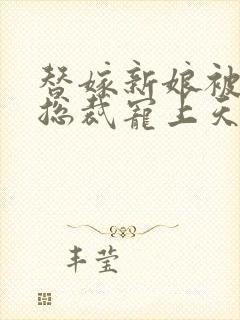 替嫁新娘被
总裁宠上天
丰莹